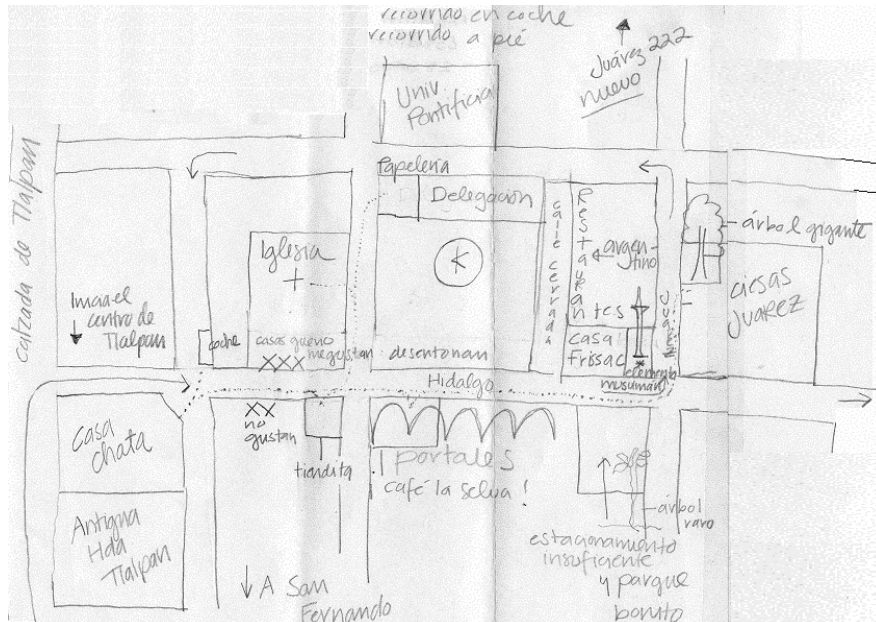 recorrido en coche
recorrido a pié
Juárez 222
nuevo
Univ
Pontificia
Calzada de Tlalpan
Papelería
Delegación
calle cerrada
Restaurantes
argentino
árbol gigante
Iglesia
K
Juárez
ciesas
Juarez
centro de
Tlalpan
coche
casas que no
me gustan
desentonan
casa
Frissac
elemento
musulmán
Hidalgo
Casa
chata
XXX
XX
no
gustan
tiendita
¡portales
café la selva!
Antigua
Hda
Tlalpan
árbol
raro
estacionamiento
insuficiente
y parque
bonito
A San
Fernando